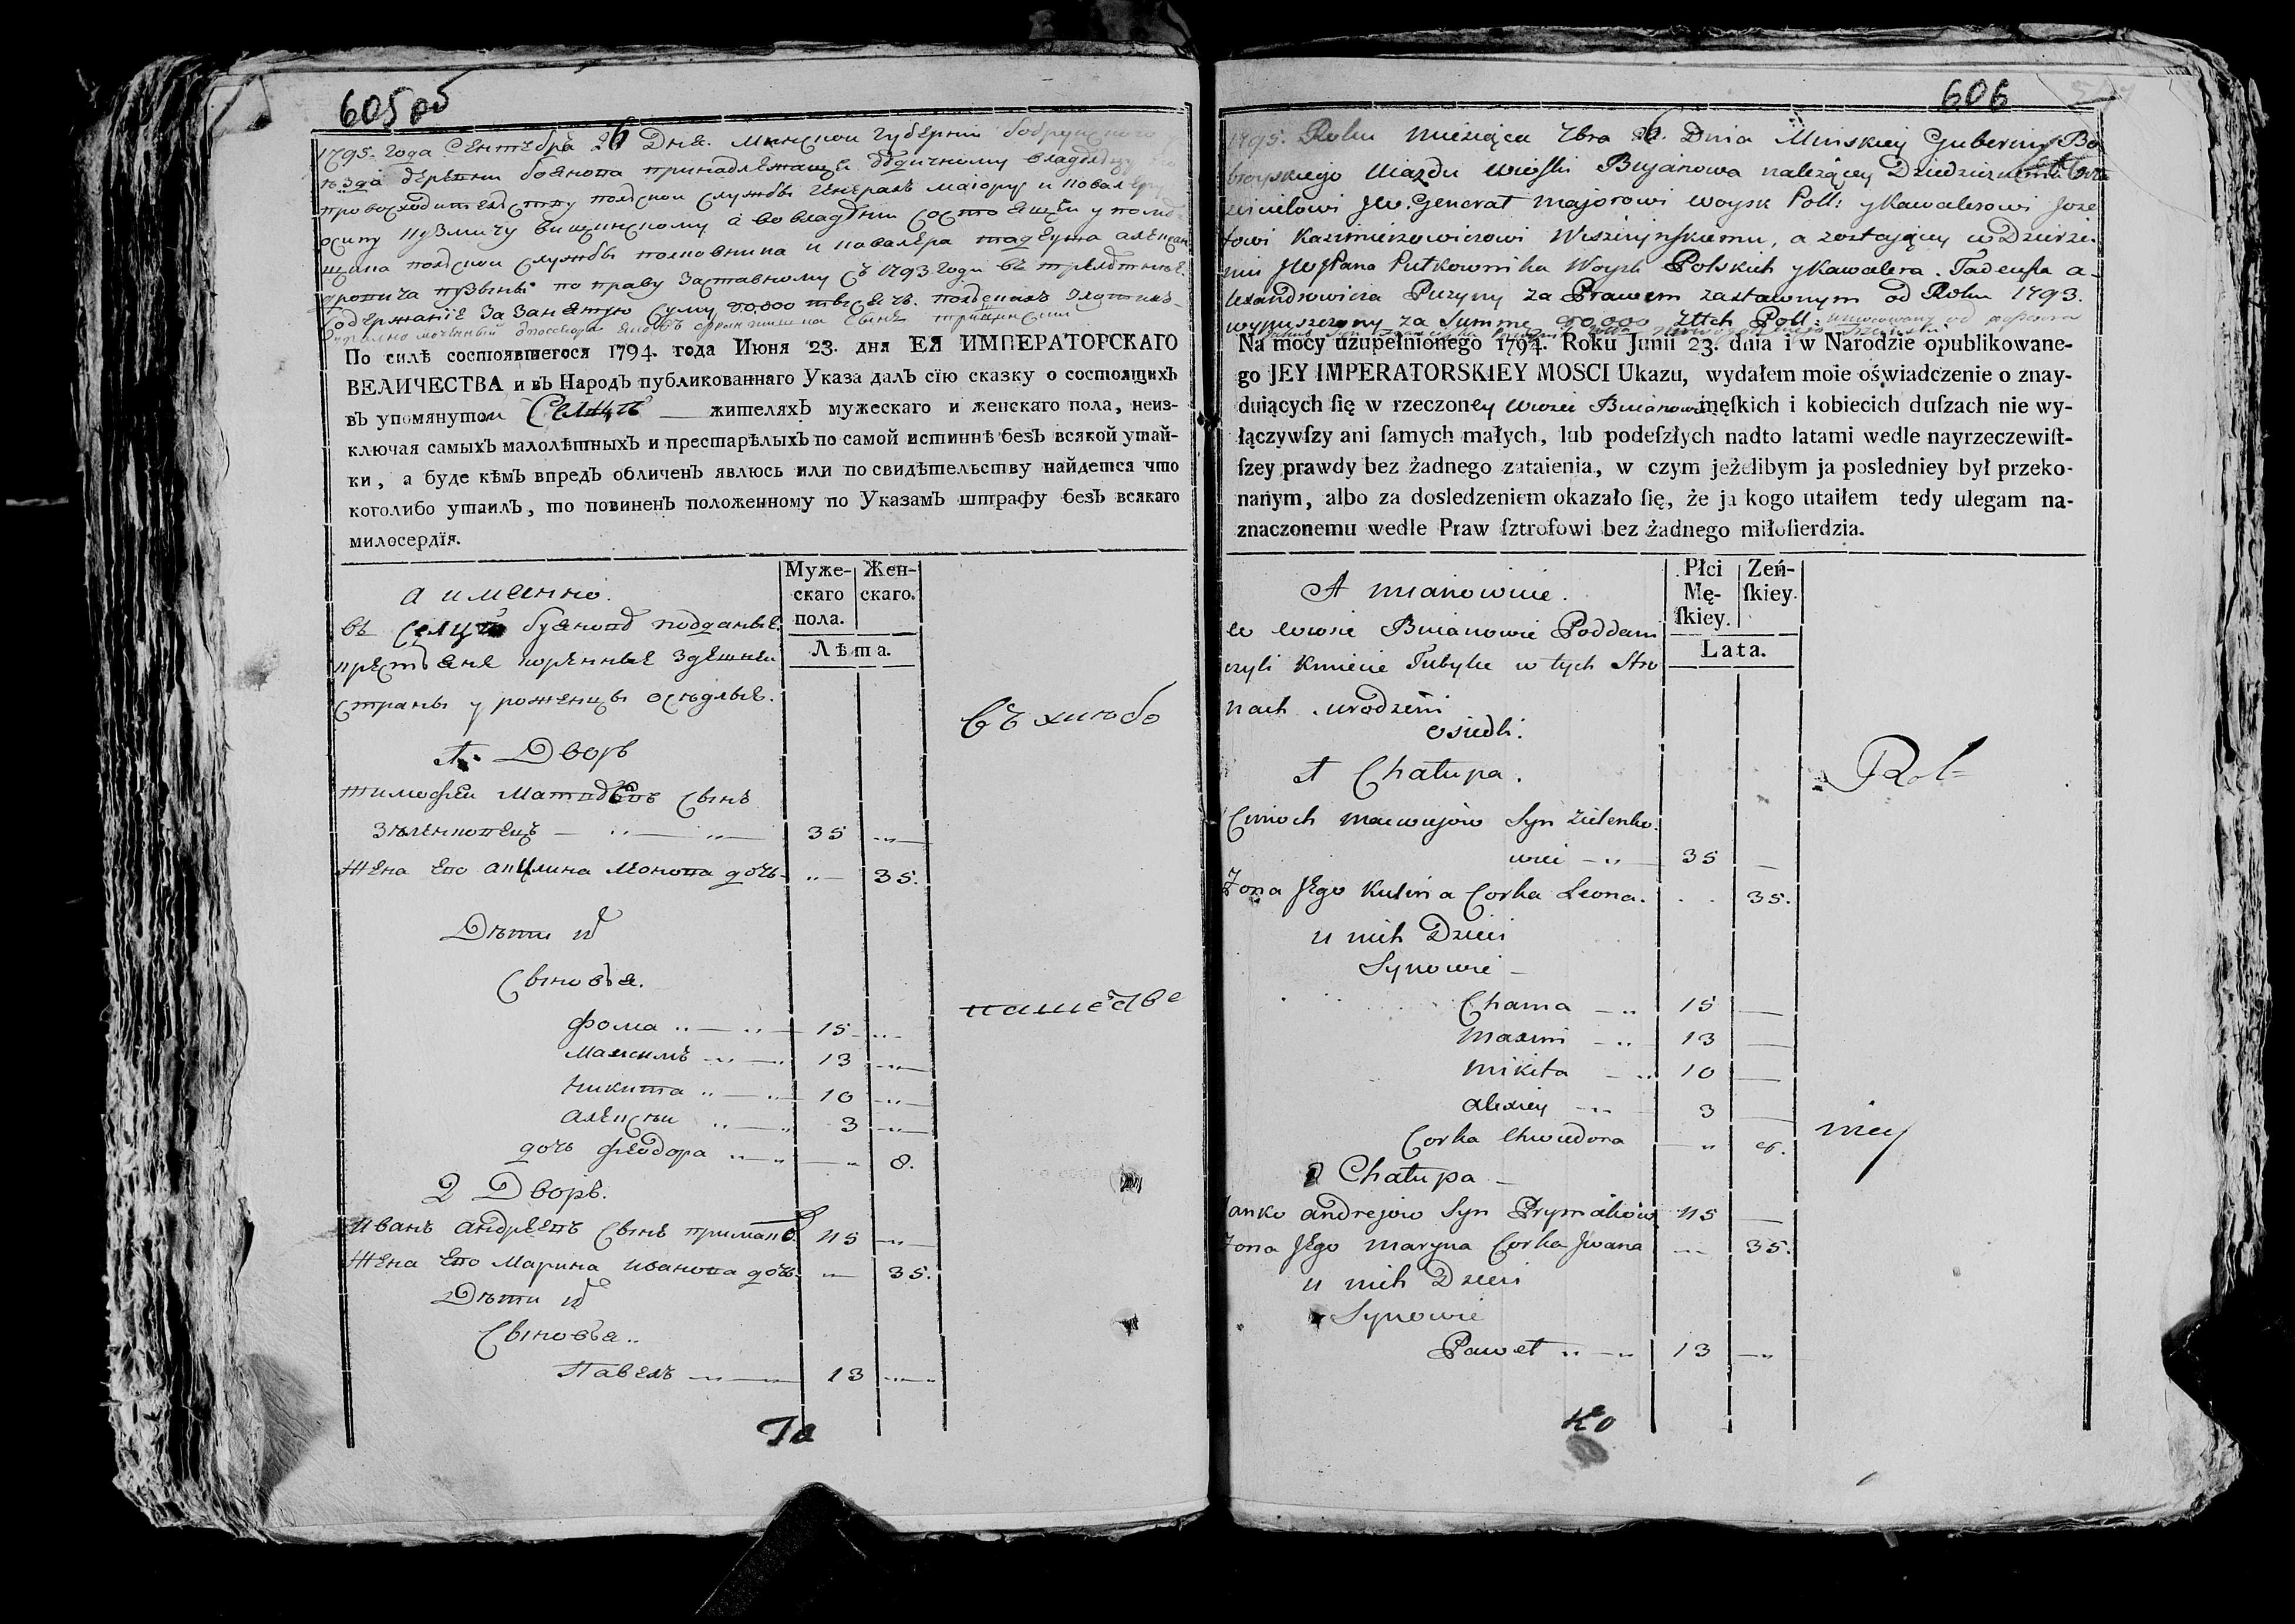 605 об
1795. года Сентѣбра 26 Дня. Минской губернии бобруйского
уезда деревни боянова принадлежащей дедичному владелцу
превосходителству полской службы Генералъ маіору и кавалеру
осипу вищинскому а во владѣнии состоящей у
полской службы полковника и кавалера тадеуша александ
ровича пузыны по праву заставному съ 1793 году въ
содержаніе за занятую суму 90,000 тысячъ. полскихъ злотихъ
По силѣ состоявшегося 1794. года Июня 23. дня ЕЯ ИМПЕРАТОРСКАГО
ВЕЛИЧЕСТВА и въ Народъ публикованнаго Указа далъ сїю сказку о состоящихъ
въ упомянутом Селцѣ жителяхъ мужескаго и женскаго пола, неиз-
ключая самыхъ малолѣтныхъ и престарѣлыхъ по самой истиннѣ безъ всякой утай-
ки, а буде кѣмъ впредъ обличенъ явлюсь или по свидѣтельству найдется что
коголибо утаилъ, то повиненъ положенному по Указамъ штрафу безъ всякаго
милосердїя.
а именно.
Муже-
скаго
пола.
Жен-
скаго.
Лѣта.
въ Селцѣ буянове подданые
крестьяне коренные здешней
страны уроженцы оседлые.
1. Дворъ
тимофеи Матвеевъ сынъ
Зеленковецъ 35
жена его акулина Леонова дочь 35.
Дети их
Сыновья.
фома 15
Максимъ 13
Никита 10
алексеи 3
дочь феодора 8.
2 Дворъ.
Иванъ андреевъ сынъ примако. 45
жена его Марина иванова дочь 35.
Дети их
Сыновья
Павелъ 13
606
1795. Roku miesiąca 7bra 26. Dnia Minskiey Gubernii Bo
bruyskiego Uiazdu wioski Bujanowa należącey Dziedzicznemu
JW. Generał majorowi woysk Poll: y Kawalerowi Joze
fowi Kazimierzowiczowi Wiszczynskiemu, a zostaiącey w Dzierże-
niu JW Pana Pułkownika Woysk Polskich y Kawalera Tadeusza a-
lexandrowicza Puzyny za Prawem zastawnym od Roku 1793.
wypuszczoney za summę 90,000 złłch Poll: umocowany od possessora
Na mocy uzupełnionego 1794. Roku Junii 23. dnia i w Narodzie opublikowane-
go JEY IMPERATORSKIEY MOSCI Ukazu, wydałem moie oświadczenie o znay-
duiących ſię w rzeczoney wiosce Buianowie męſkich i kobiecich duſzach nie wy-
łączywſzy ani ſamych małych, lub podeſzłych nadto latami wedle nayrzeczewiſt-
ſzey prawdy bez żadnego zataienia, w czym jeżelibym ja posledniey był przeko-
nanym, albo za dosledzeniem okazało ſię, że ja kogo utaiłem tedy ulegam na-
znaczonemu wedle Praw ſztrofowi bez żadnego miłoſierdzia.
A mianowicie.
Płci
Mę-
ſkiey.
Zeń-
ſkiey.
Lata.
w wiosce Buianowie Poddani
czyli Kmiecie Tubylce w tych Stro
nach urodzeni
osiedli.
1 Chałupa.
Cimoch maciejow Syn Zielenko
wiec 35
Zona Jego Kulina Corka Leona. 35.
u nich Dzieci
Synowie
Chama 15
maxim 13
mikita 10
alexiey 3
Corka Chwiedora 8.
2 Chałupa
Janko andrejow Syn Prymakow 45
Zona Jego maryna Corka Jwana 35.
u nich Dzieci
Synowie
Paweł 13